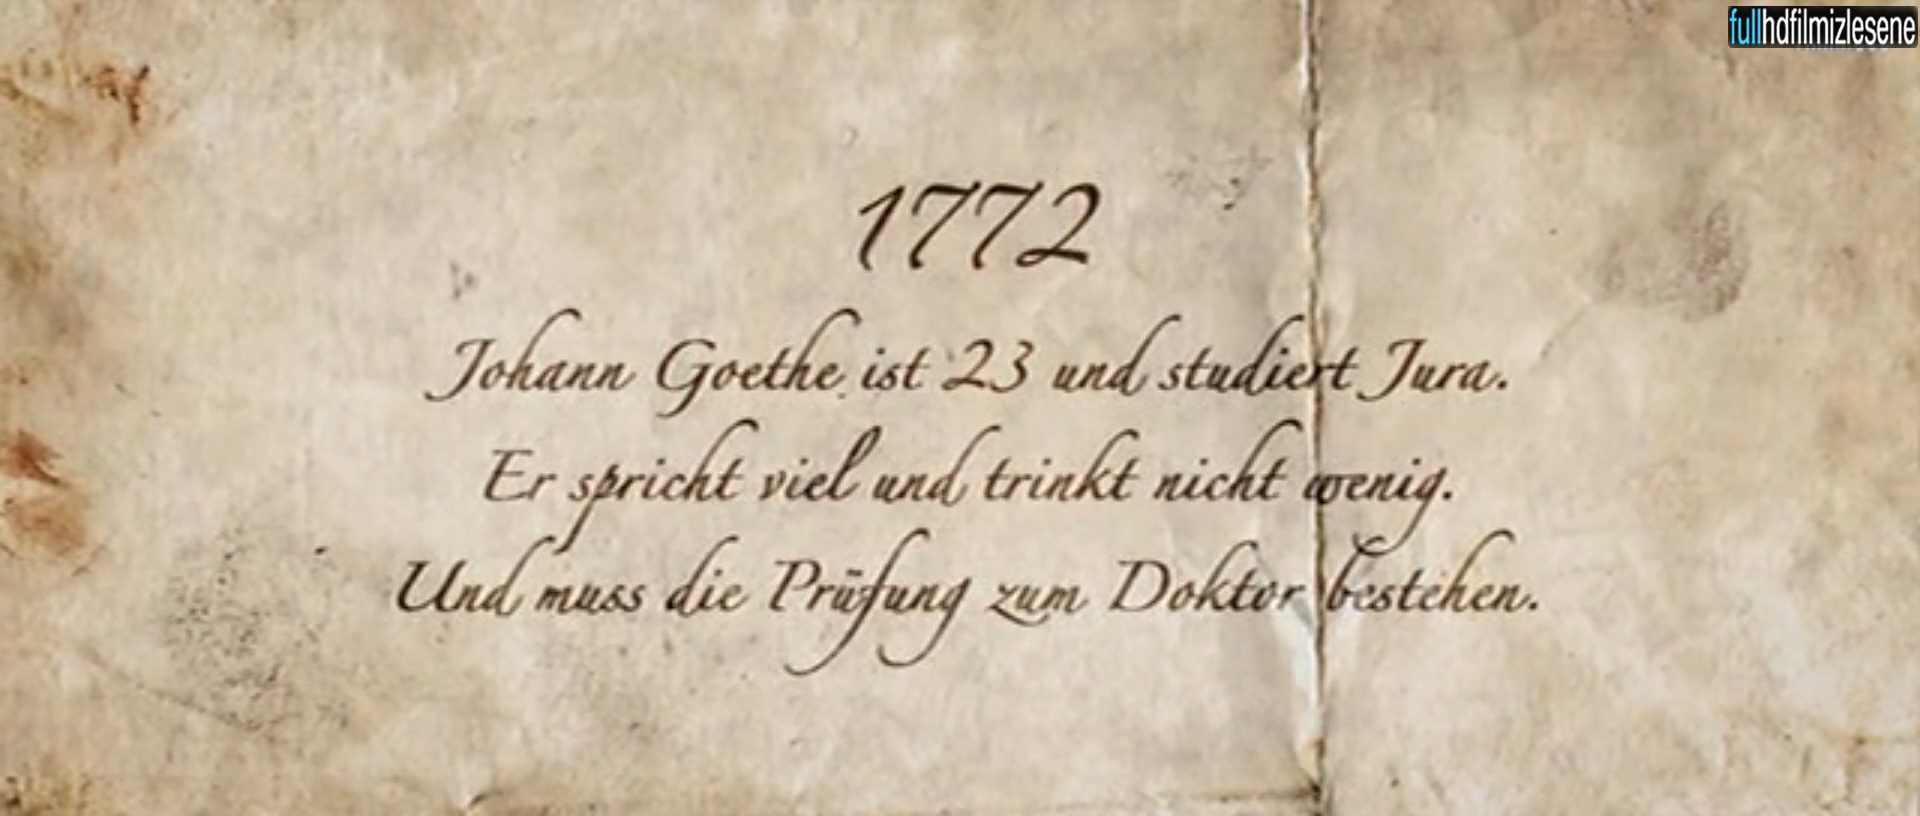 fullhdfilmizlesene
1772
Johann Goethe ist 23 und studiert Jura.
Er spricht viel und trinkt nicht wenig.
Und muss die Prüfung zum Doktor bestehen.